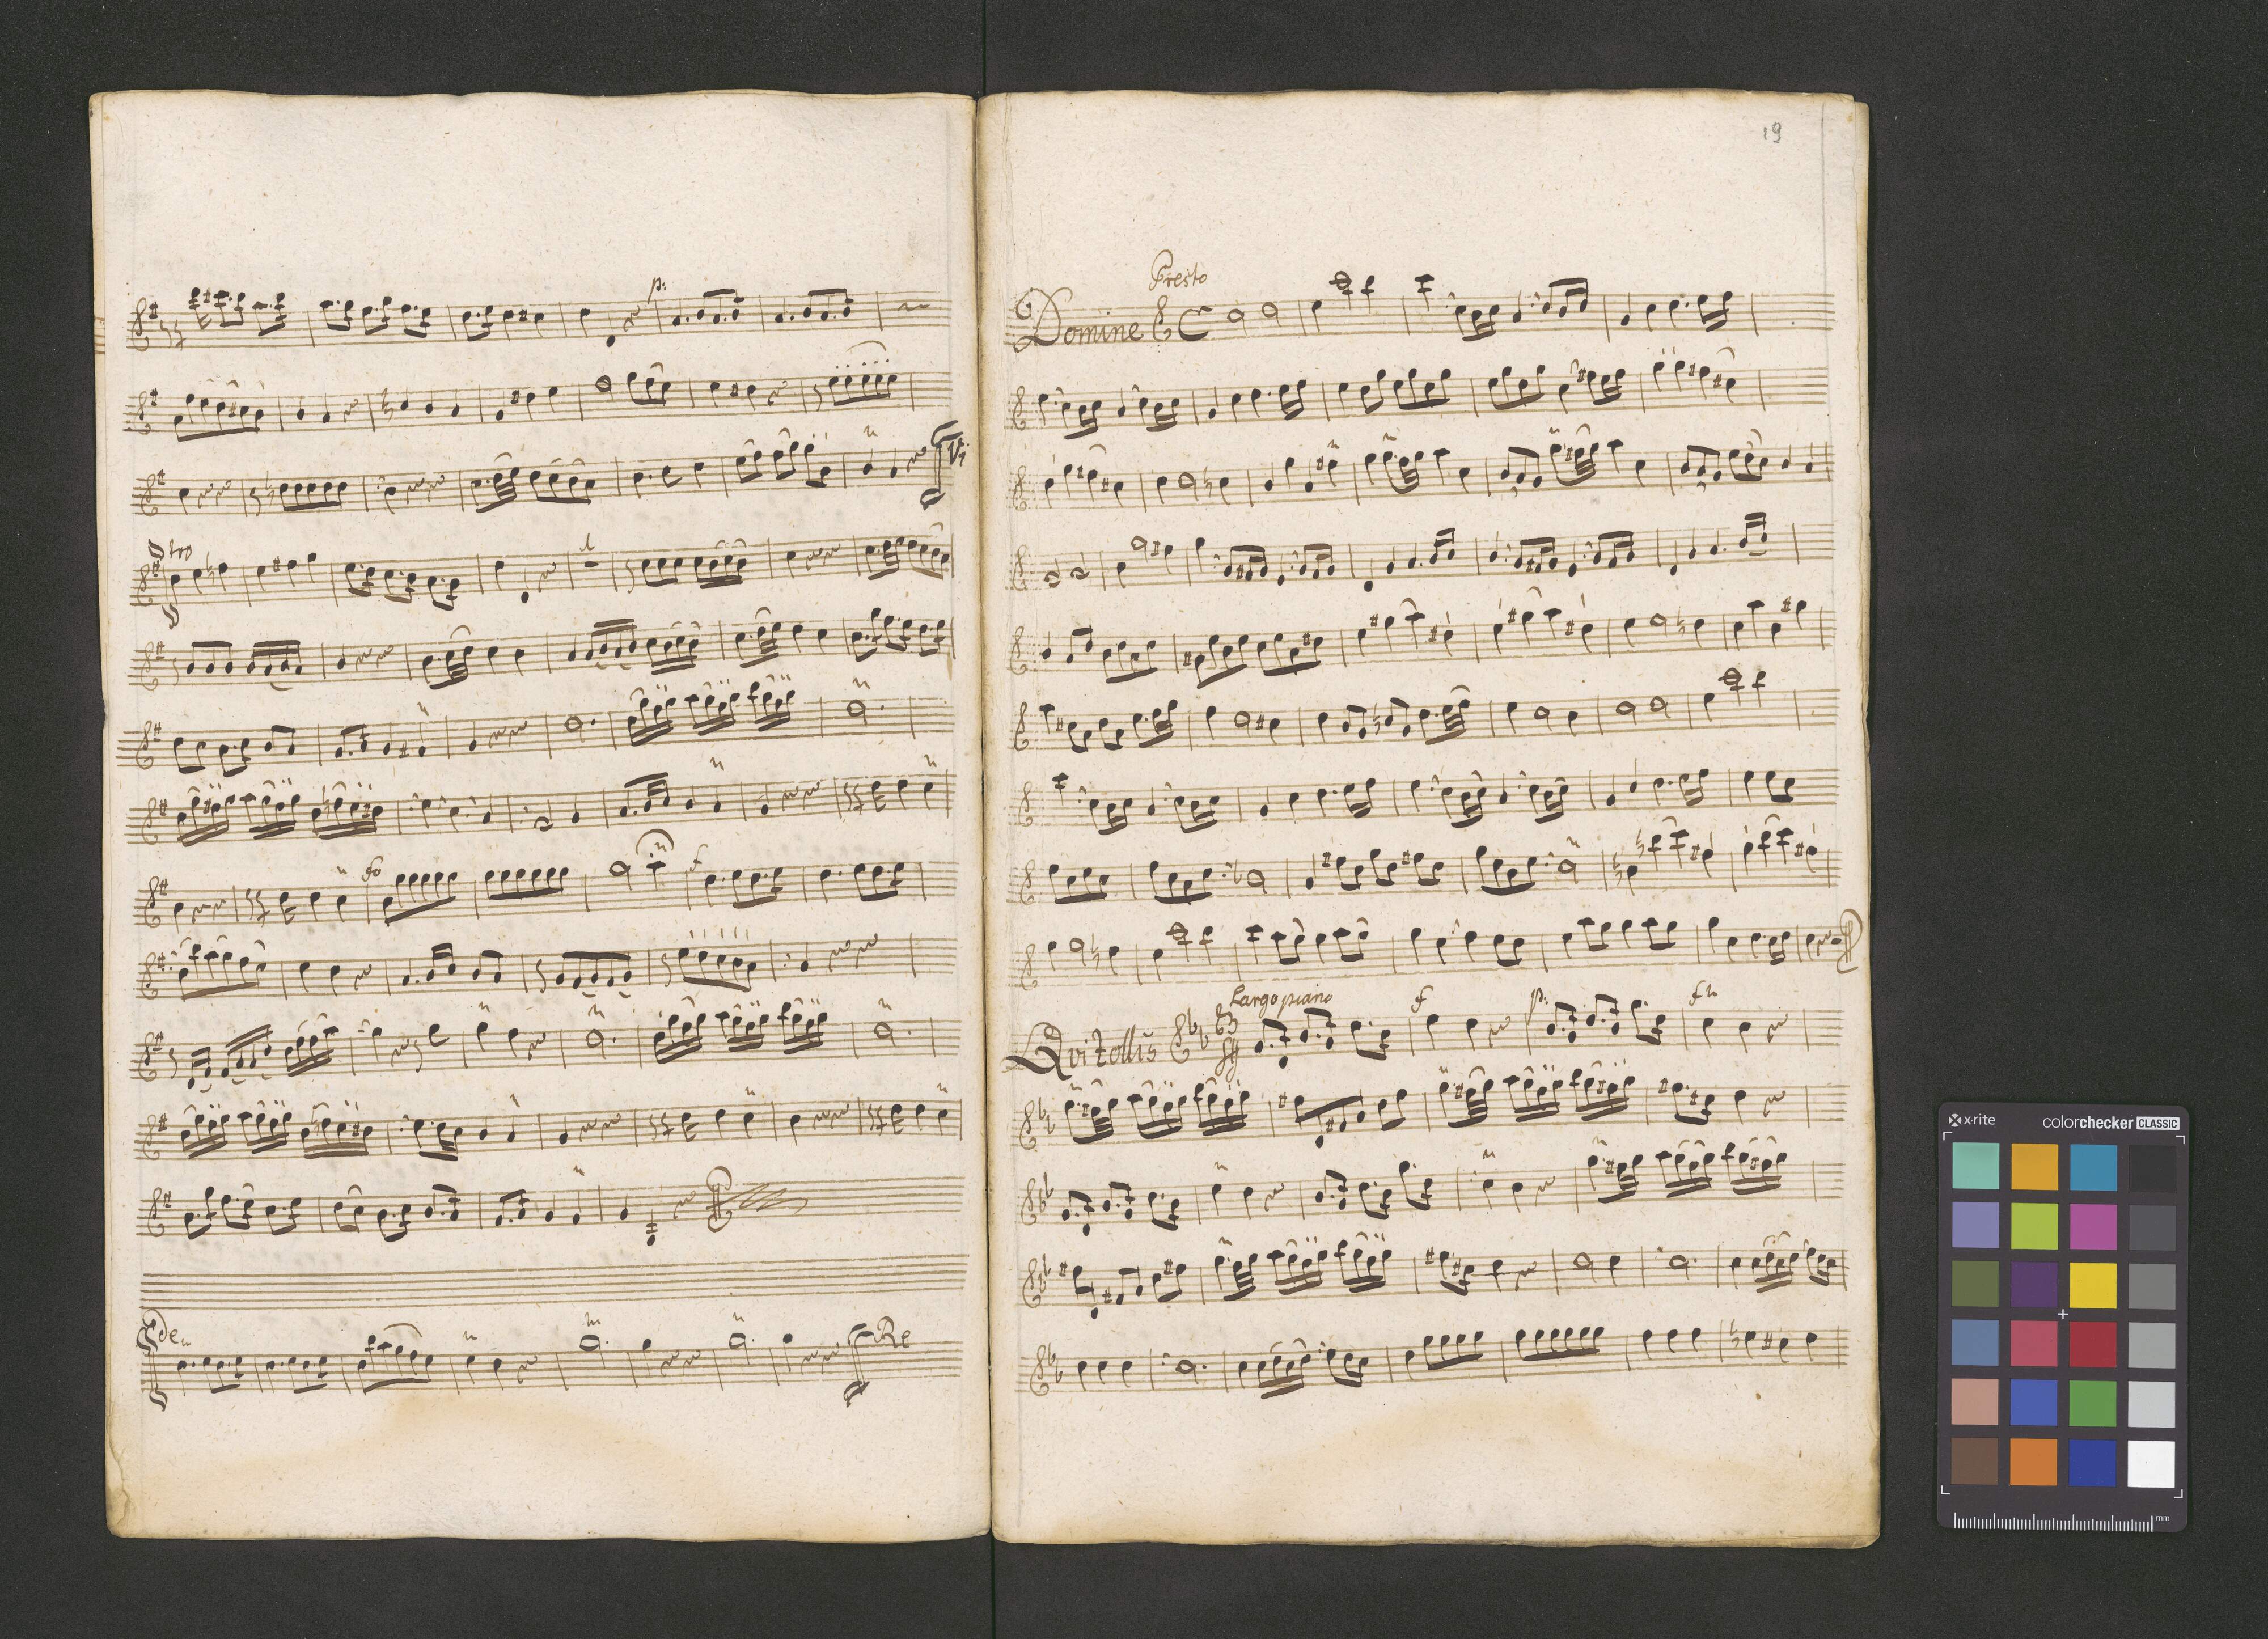 p:
fo
f
Re
19
Presto
Domine
Largo piano
f
p:
f
Qvi tollis
x·rite
colorchecker CLASSIC
mm